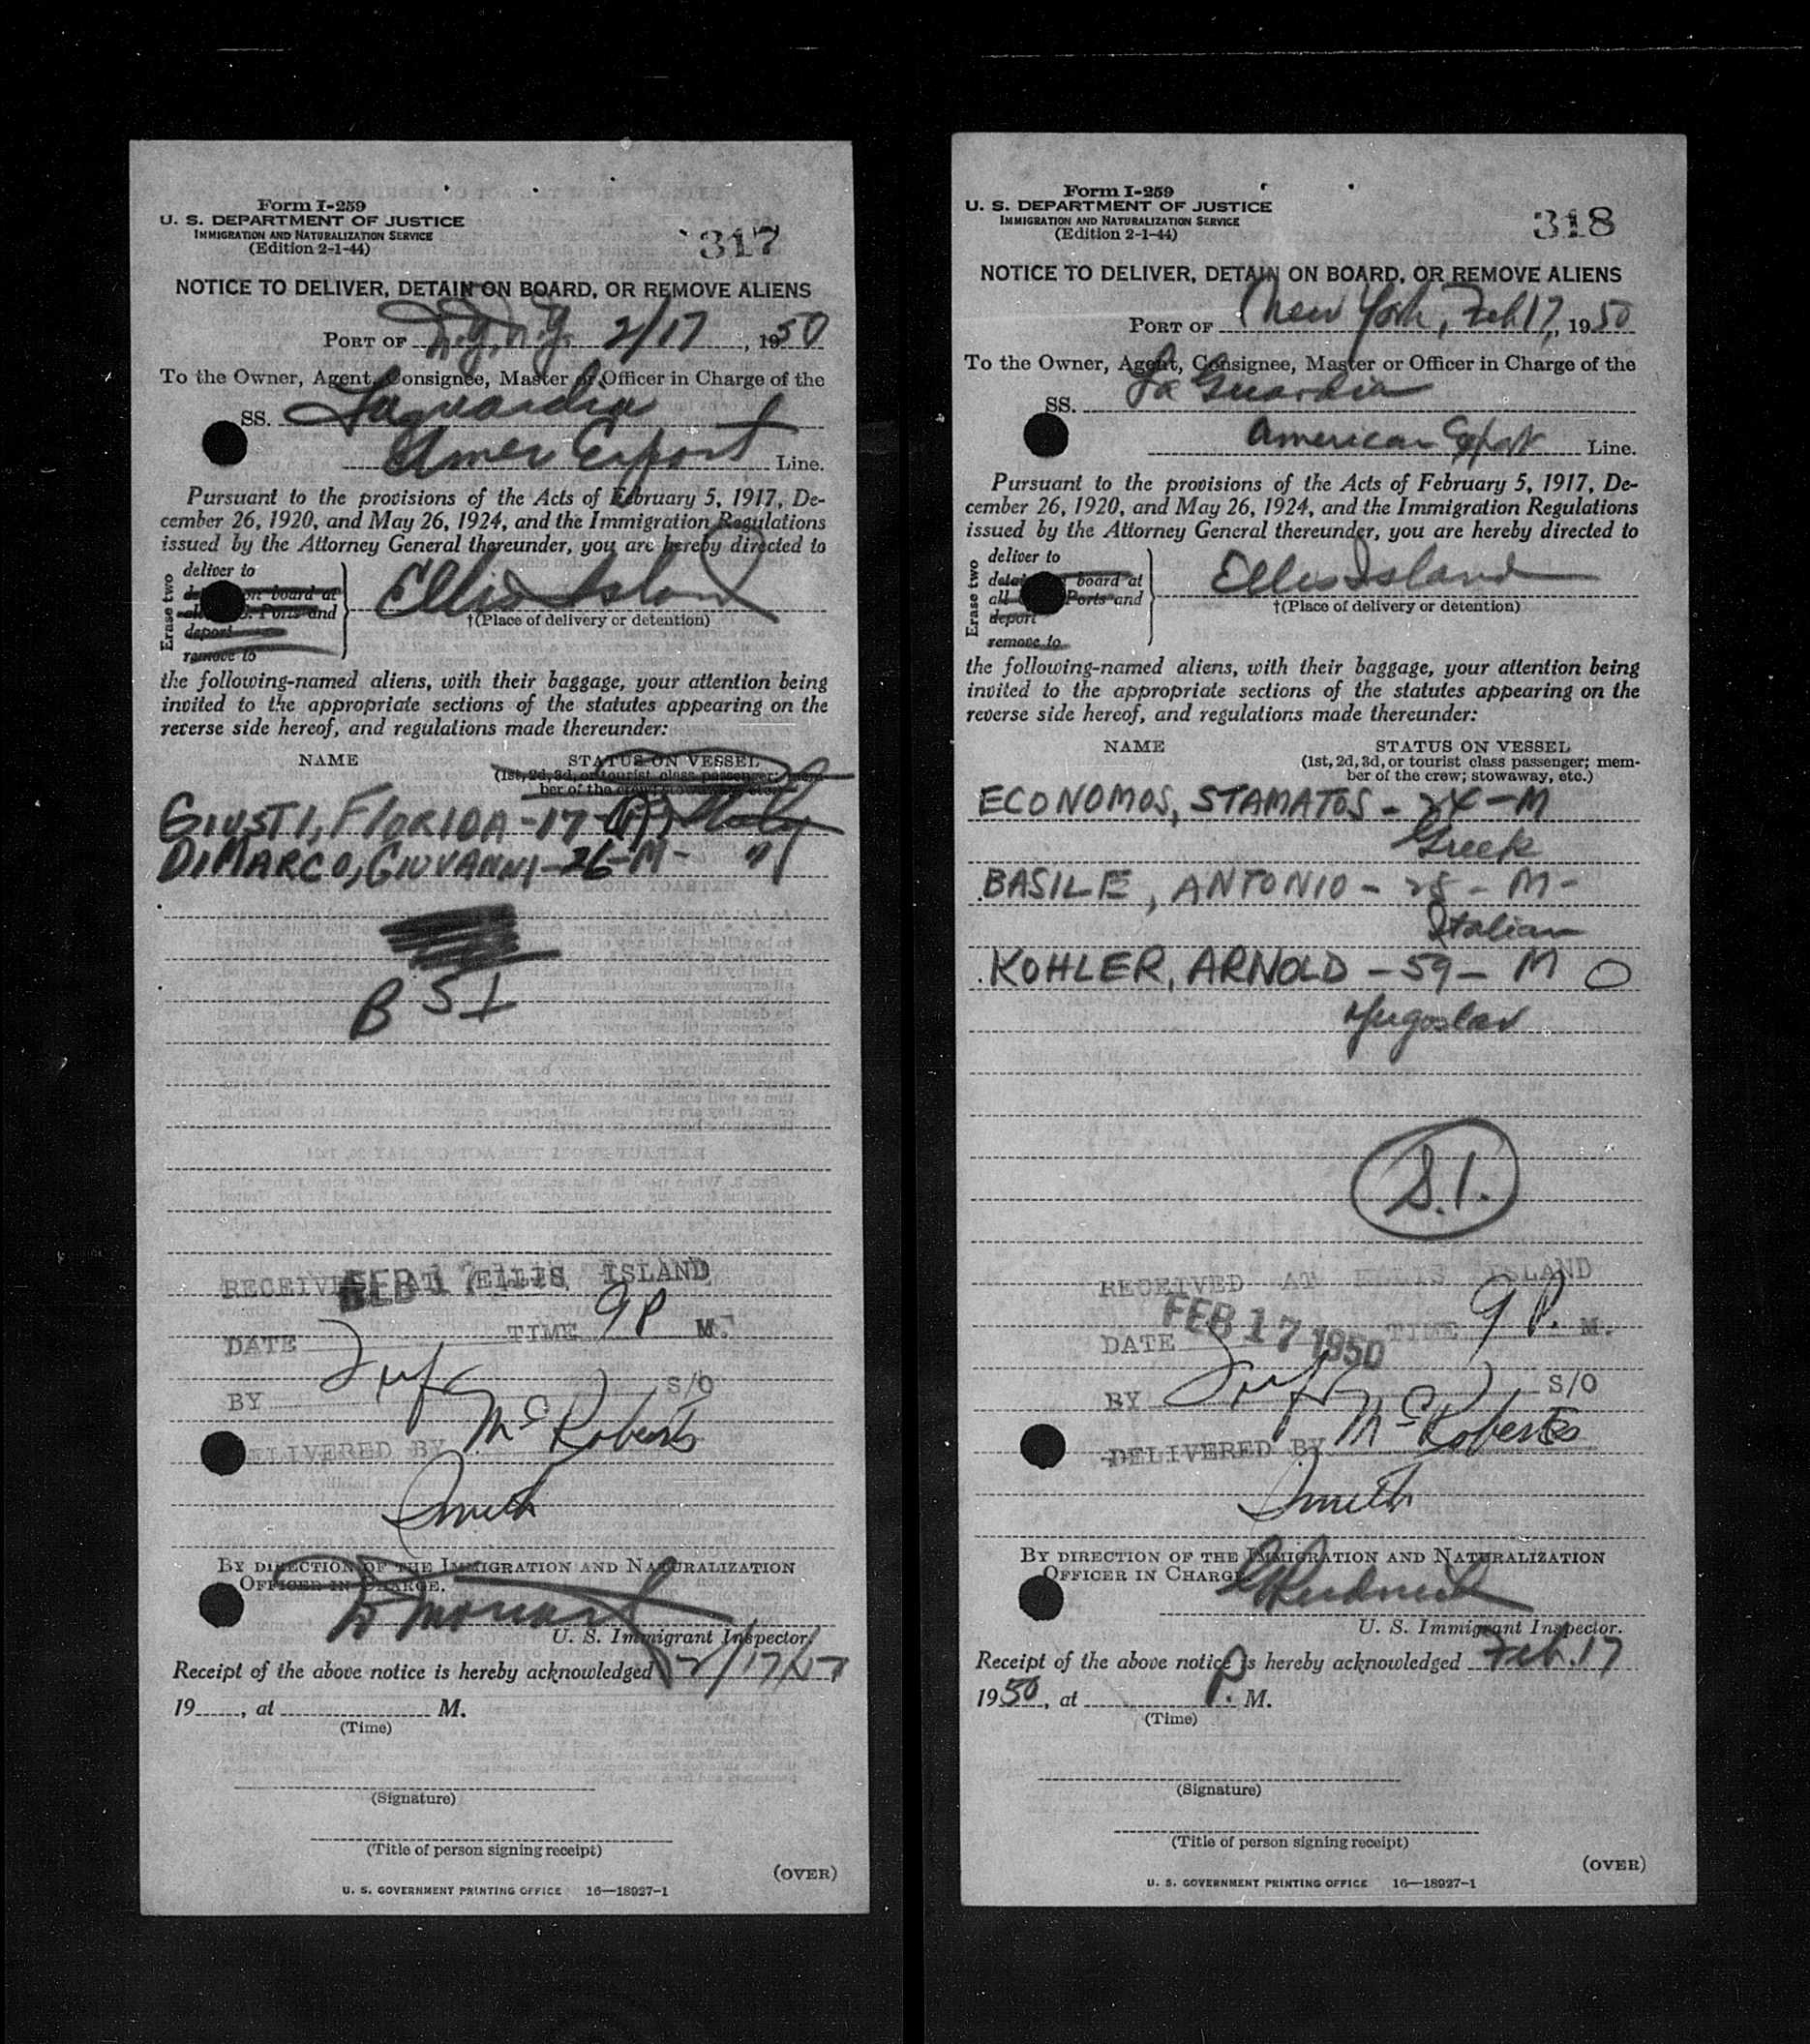 Form I-259
U. S. DEPARTMENT OF JUSTICE
IMMIGRATION AND NATURALIZATION SERVICE
(Edition 2-1-44)
317
NOTICE TO DELIVER, DETAIN ON BOARD, OR REMOVE ALIENS
PORT OF N.Y.N.Y. 2/17, 1950
To the Owner, Agent, Consignee, Master or Officer in Charge of the
SS. Laguardia
Amer Export Line.
Pursuant to the provisions of the Acts of February 5, 1917, De-
cember 26, 1920, and May 26, 1924, and the Immigration Regulations
issued by the Attorney General thereunder, you are hereby directed to
Erase two
deliver to
on board at
Ports and
deport
remove to
Ellis Island
†(Place of delivery or detention)
the following-named aliens, with their baggage, your attention being
invited to the appropriate sections of the statutes appearing on the
reverse side hereof, and regulations made thereunder:
NAME STATUS ON VESSEL
(1st, 2d, 3d, or tourist class passenger; mem-
ber of the crew; stowaway, etc.)
GIUSTI, FLORIDA-17-
DIMARCO, GIOVANNI-26-M- "
B SI
RECEIVED AT ELLIS ISLAND
FEB 17
DATE TIME 9 P M.
BY S/O
DELIVERED BY McRoberts
Smith
BY DIRECTION OF THE IMMIGRATION AND NATURALIZATION
OFFICER IN CHARGE.
U. S. Immigrant Inspector.
Receipt of the above notice is hereby acknowledged 2/17/17
19......, at .................... M.
(Time)
(Signature)
(Title of person signing receipt)
(OVER)
U. S. GOVERNMENT PRINTING OFFICE 16—18927-1
Form I-259
U. S. DEPARTMENT OF JUSTICE
IMMIGRATION AND NATURALIZATION SERVICE
(Edition 2-1-44)
318
NOTICE TO DELIVER, DETAIN ON BOARD, OR REMOVE ALIENS
PORT OF New York, Feb 17, 1950
To the Owner, Agent, Consignee, Master or Officer in Charge of the
SS. La Guardia
American Export Line.
Pursuant to the provisions of the Acts of February 5, 1917, De-
cember 26, 1920, and May 26, 1924, and the Immigration Regulations
issued by the Attorney General thereunder, you are hereby directed to
Erase two
deliver to
board at
all Ports and
deport
remove to
Ellis Island
†(Place of delivery or detention)
the following-named aliens, with their baggage, your attention being
invited to the appropriate sections of the statutes appearing on the
reverse side hereof, and regulations made thereunder:
NAME STATUS ON VESSEL
(1st, 2d, 3d, or tourist class passenger; mem-
ber of the crew; stowaway, etc.)
ECONOMOS, STAMATOS - 24 - M
Greek
BASILE, ANTONIO - 28 - M -
Italian
KOHLER, ARNOLD - 59 - M O
Yugoslav
S.I.
RECEIVED AT ELLIS ISLAND
DATE FEB 17 1950 TIME 9 P. M.
BY S/O
DELIVERED BY McRoberts
Smith
BY DIRECTION OF THE IMMIGRATION AND NATURALIZATION
OFFICER IN CHARGE.
U. S. Immigrant Inspector.
Receipt of the above notice is hereby acknowledged Feb. 17
1950, at P. M.
(Time)
(Signature)
(Title of person signing receipt)
(OVER)
U. S. GOVERNMENT PRINTING OFFICE 16—18927-1